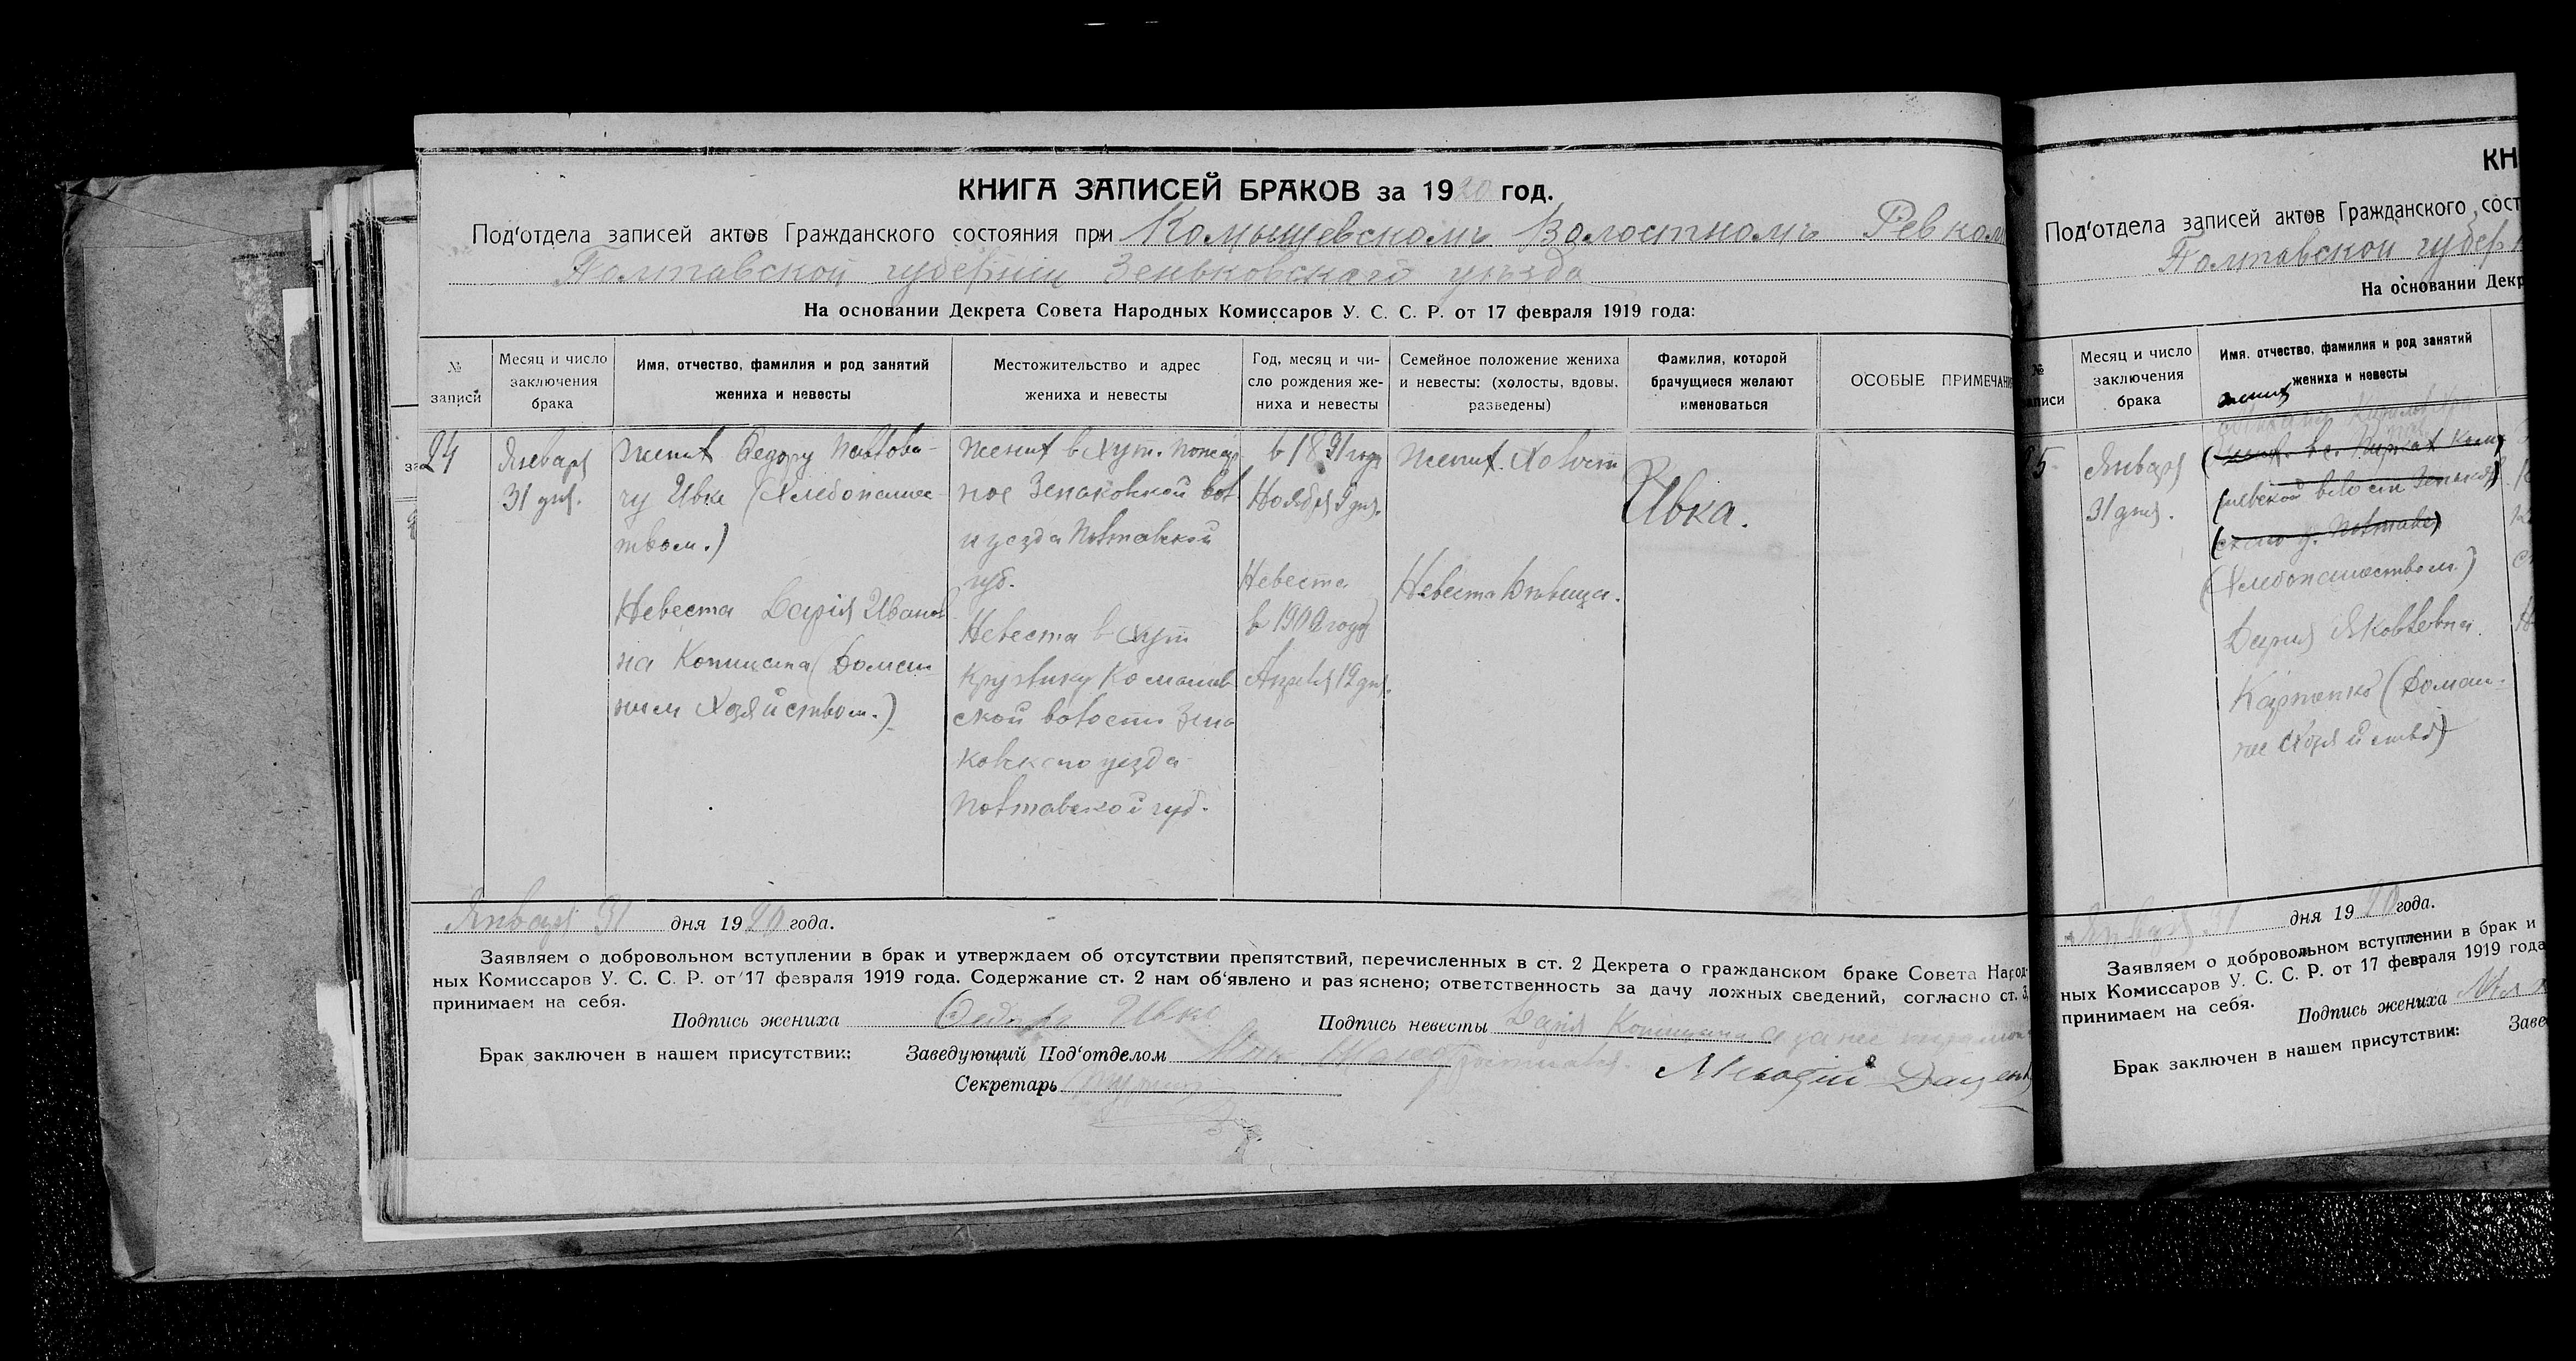 КНИГА ЗАПИСЕЙ БРАКОВ за 1920 год.
Под'отдела записей актов Гражданского состояния при Комышевскомъ Волостномъ Ревком
Полтавской губернии Зеньковскаго уѣзда
На основании Декрета Совета Народных Комиссаров У. С. С. Р. от 17 февраля 1919 года:
№ записи
Месяц и число заключения брака
Имя, отчество, фамилия и род занятий жениха и невесты
Местожительство и адрес жениха и невесты
Год, месяц и число рождения жениха и невесты
Семейное положение жениха и невесты: (холосты, вдовы, разведены)
Фамилия, которой брачущиеся желают именоваться
ОСОБЫЕ ПРИМЕЧАНИ
24
Января
31 дня.
Жених Федору Павлови-
чу Ивка (Хлебопашес-
твом.)
Невеста Дария Иванов
на Копицина (Домаш
ним Хозяйством.)
Жених в хут.
ное Зенковской вол
и уезда Полтавской
губ.
Невеста в хут
Круглику Комышев
ской волости Зень
ковского уезда
Полтавской губ.
в 1891 году
Ноября 9 дня.
Невеста
в 1900 году
Апреля 12 дня.
Жених. Холост
Невеста Дѣвица.
Ивка.
Января 31 дня 1920 года.
Заявляем о добровольном вступлении в брак и утверждаем об отсутствии препятствий, перечисленных в ст. 2 Декрета о гражданском браке Совета Народ-
ных Комиссаров У. С. С. Р. от 17 февраля 1919 года. Содержание ст. 2 нам об'явлено и раз'яснено; ответственность за дачу ложных сведений, согласно ст. 3,
принимаем на себя.
Подпись жениха Федор Ивко Подпись невесты Дарія Копицина а за нее
Брак заключен в нашем присутствии: Заведующий Под'отделом
Мефодій Даценк
Секретарь
КН
Под'отдела записей актов Гражданского сост
Полтавской губерн
На основании Декр
№ записи
Месяц и число заключения брака
Имя, отчество, фамилия и род занятий жениха и невесты
жених
25
Января
31 дня.
(Хлебопашеством)
Дария Яковлевна
Карпенко (Домаш-
нее Хозяйство)
Января 31 дня 1920 года.
Заявляем о добровольном вступлении в брак и
ных Комиссаров У. С. С. Р. от 17 февраля 1919 года
принимаем на себя.
Подпись жениха
Брак заключен в нашем присутствии: Заве